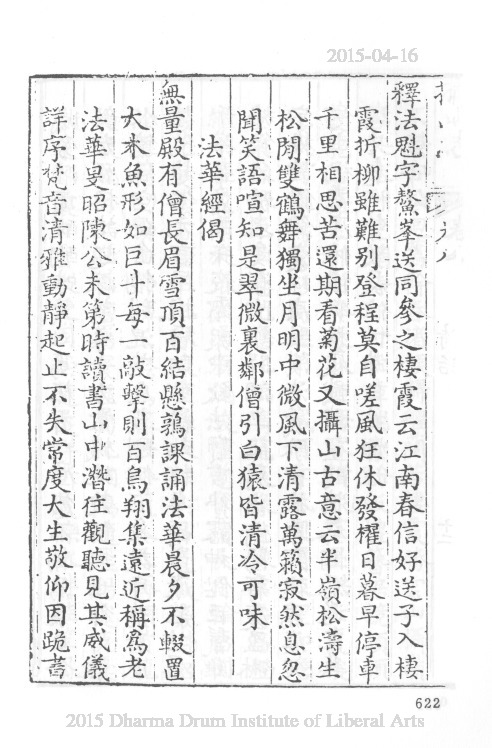 2015-04-16
釋法魁字鰲峯送同參之棲霞云江南春信好送子入棲
霞折柳雖難別登程莫自嗟風狂休發櫂日暮早停車
千里相思苦還期看菊花又攝山古意云半嶺松濤生
松閒雙鶴舞獨坐月明中微風下清露萬籟寂然息忽
聞笑語喧知是翠微裏鄰僧引白猿皆清冷可味
法華經偈
無量殿有僧長眉雪頂百結懸鶉課誦法華晨夕不輟置
大木魚形如巨斗每一敲擊則百鳥翔集遠近稱為老
法華旻昭陳公未第時讀書山中潛往觀聽見其威儀
詳序梵音清雅動靜起止不失常度大生敬仰因跪書
622
2015 Dharma Drum Institute of Liberal Arts